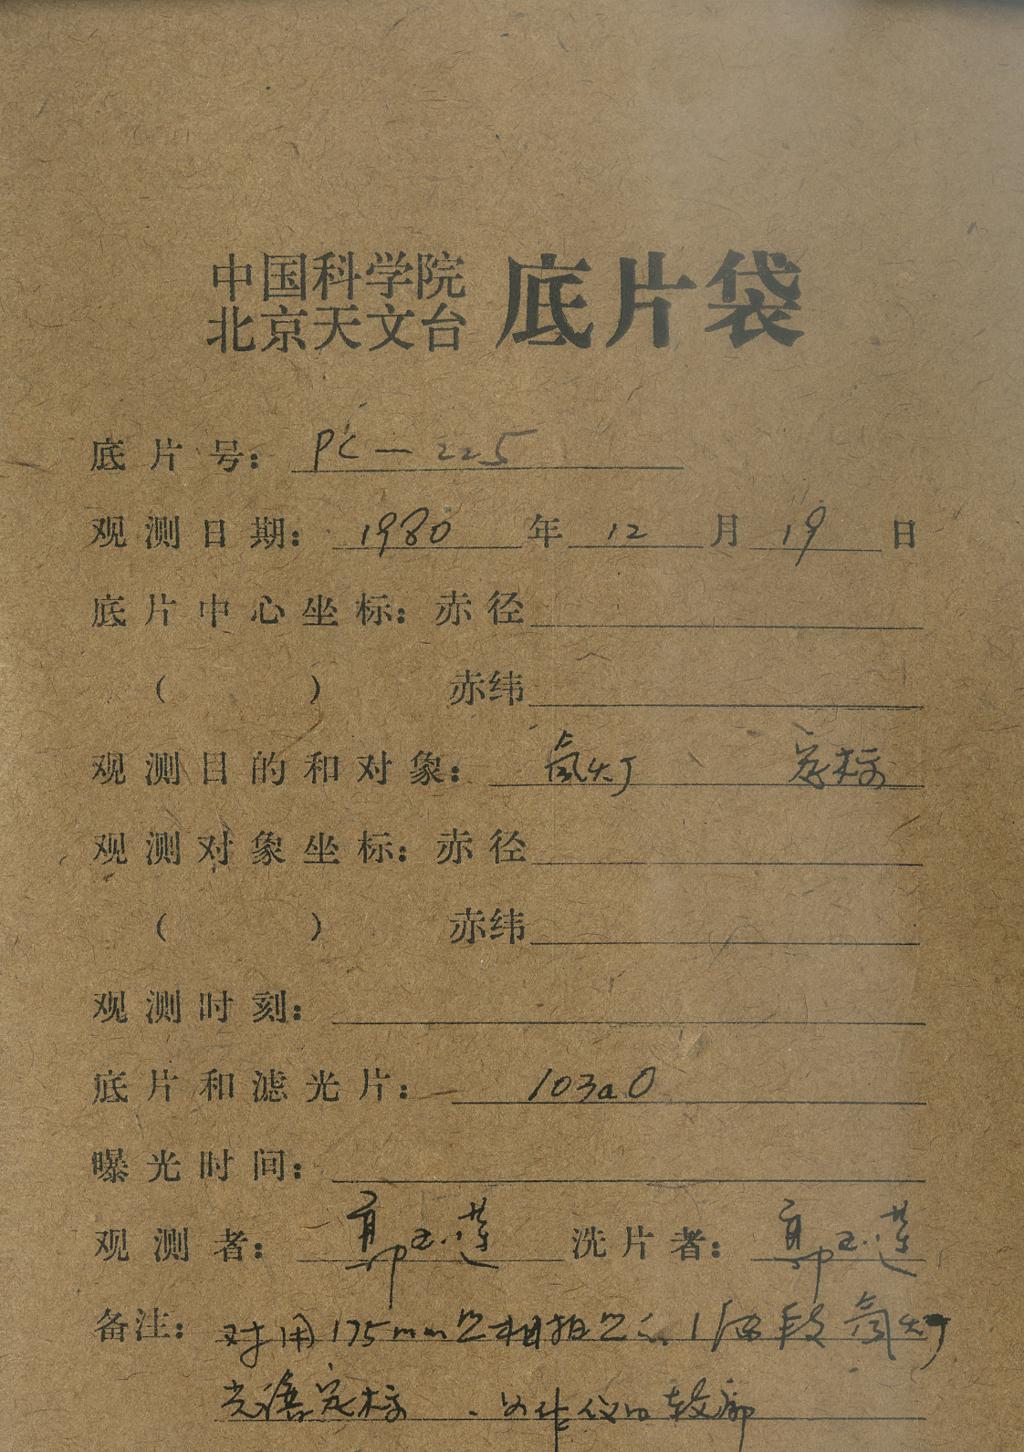 中国科学院
北京天文台 底片袋
底片号: PC-225
观测日期: 1980 年 12 月 19 日
底片中心坐标: 赤径
( ) 赤纬
观测目的和对象: 氙灯 定标
观测对象坐标: 赤径
( ) 赤纬
观测时刻:
底片和滤光片: 103aO
曝光时间:
观测者: 郭玉莲 洗片者: 郭玉莲
备注: 对用175mm 相拍 段 灯
光谱定标